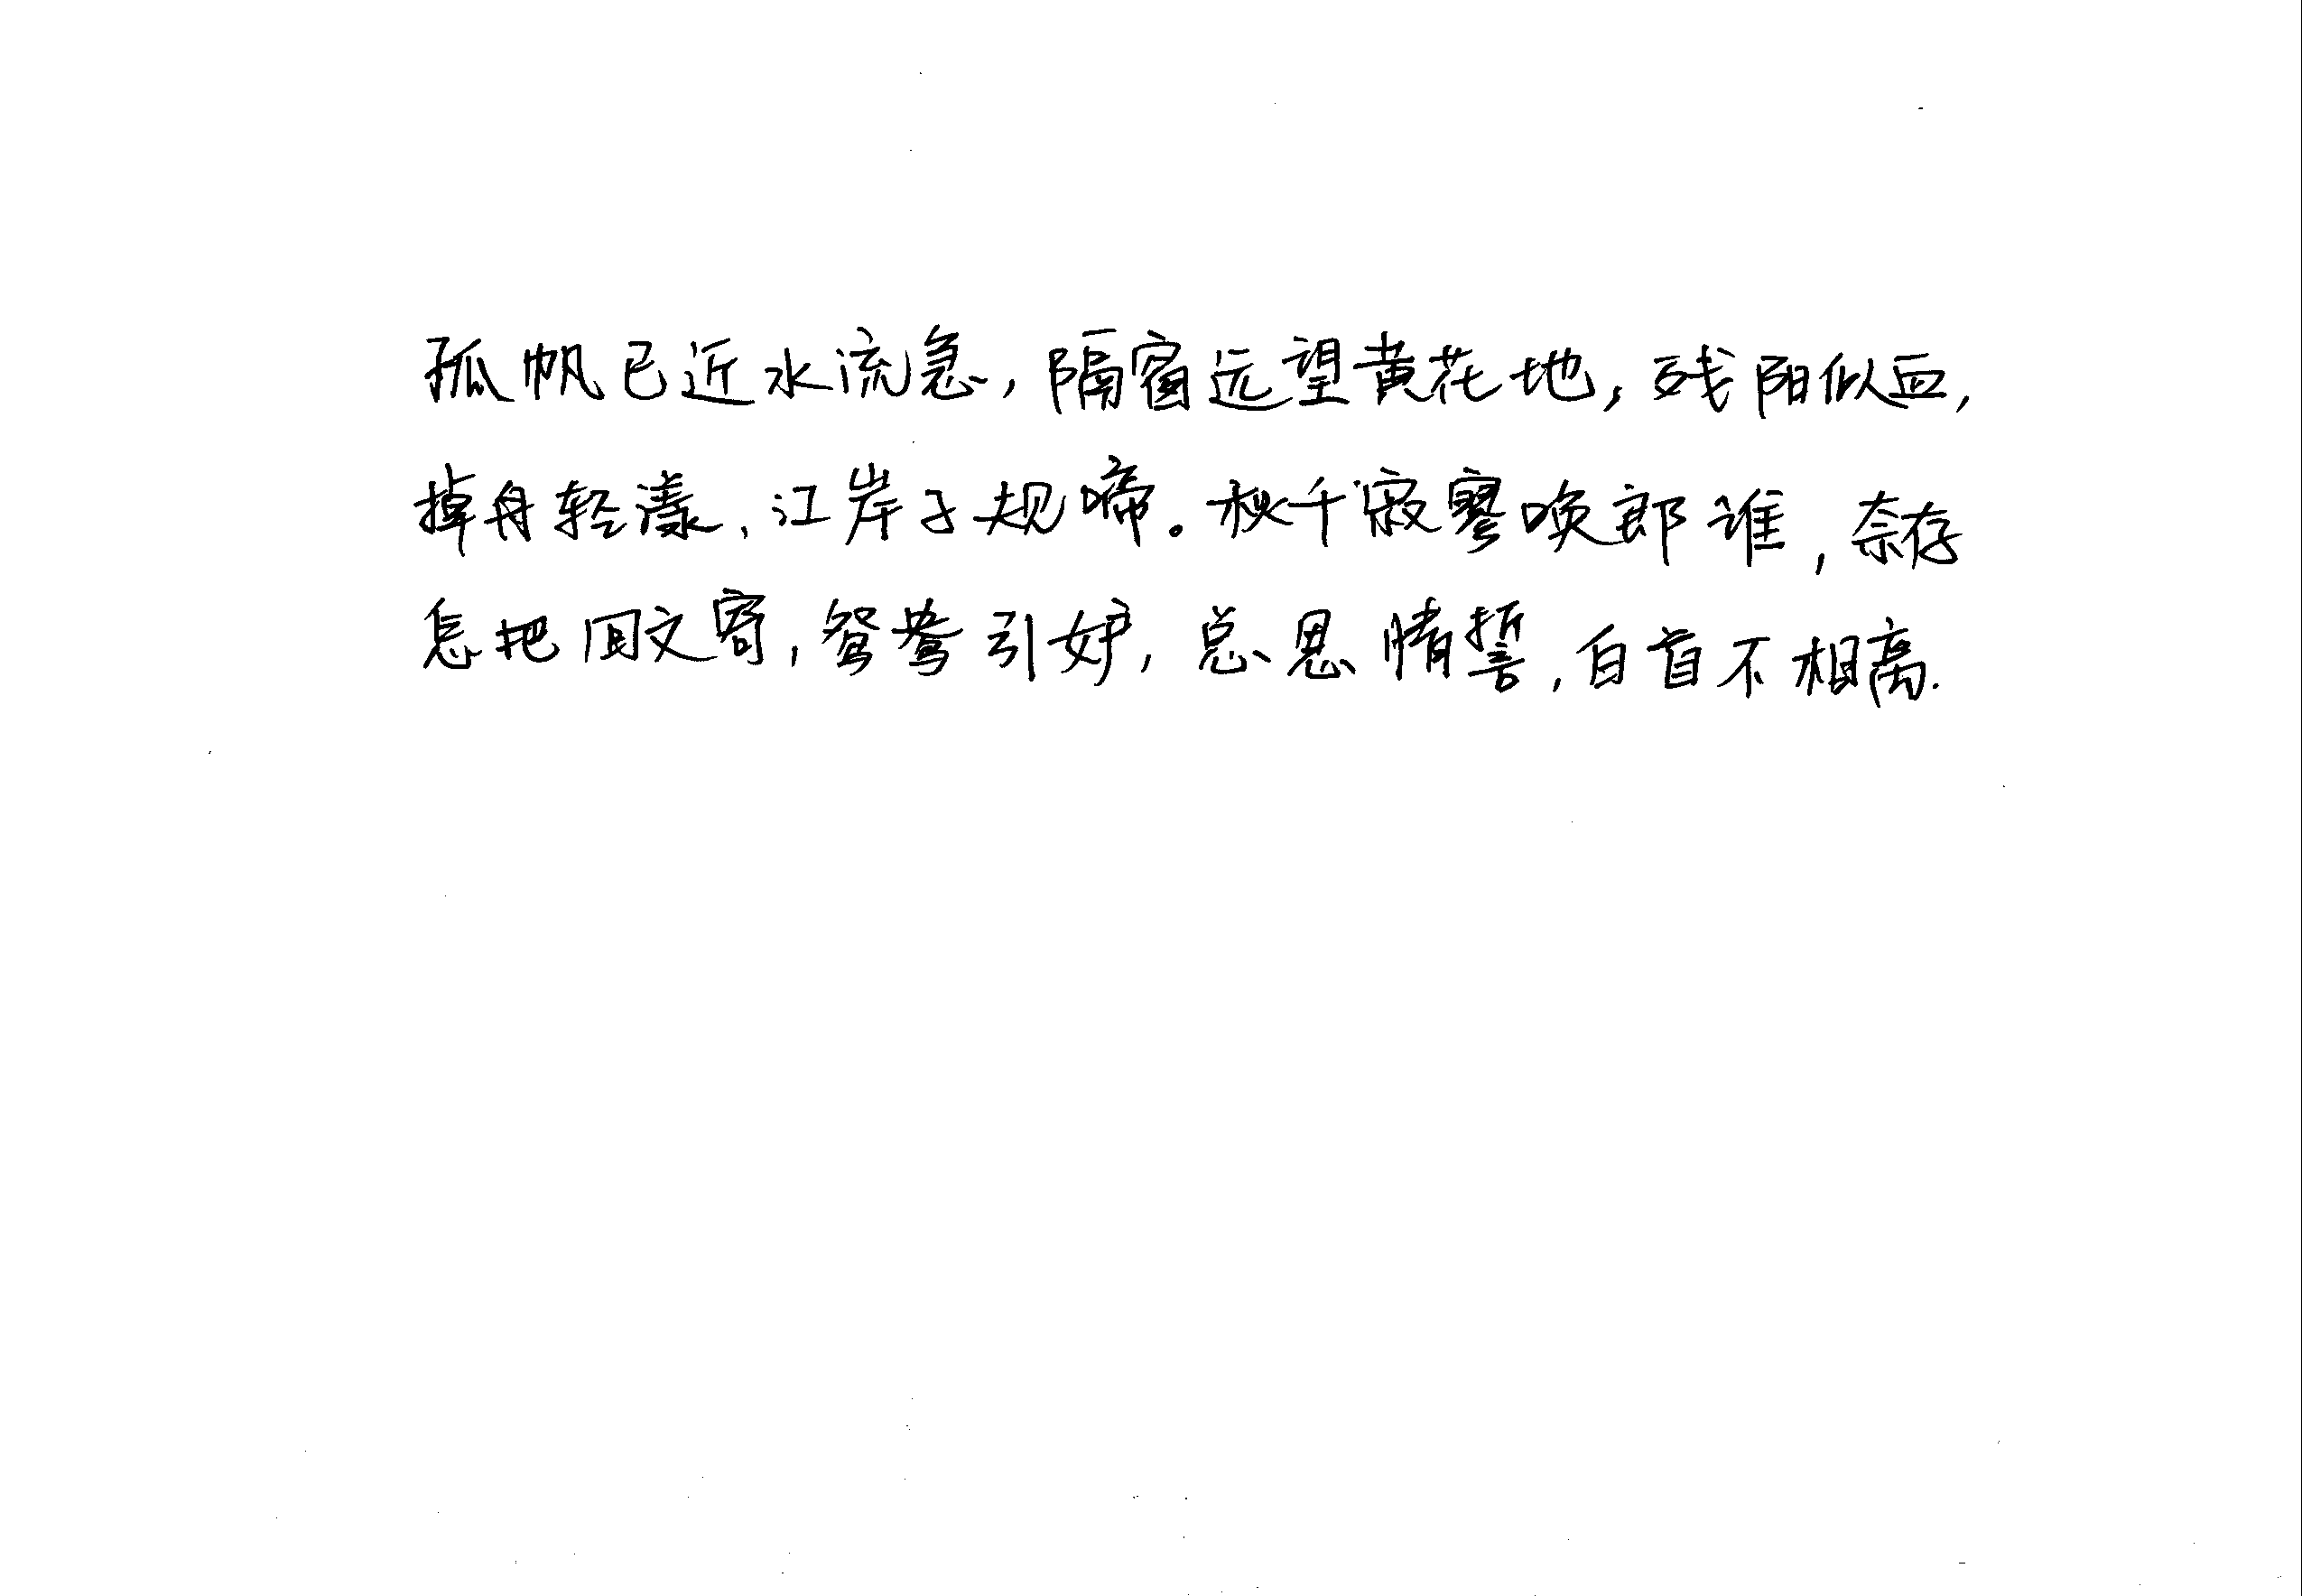 孤帆已近水流急，隔窗远望黄花地，残阳似血，
掉舟轻漾、江岸子规啼。秋千寂寥唤郎谁，奈存
怎把回文寄，鸳鸯引妒，总思情誓，白首不相离.